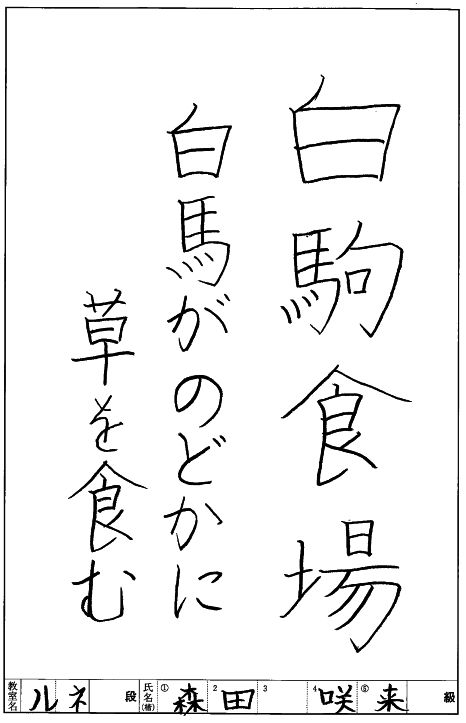 白駒食場
白馬がのどかに
草を食む
教室名 ルネ 段 氏名(楷) ① 森 2 田 3 4 咲 ⑤ 来 級